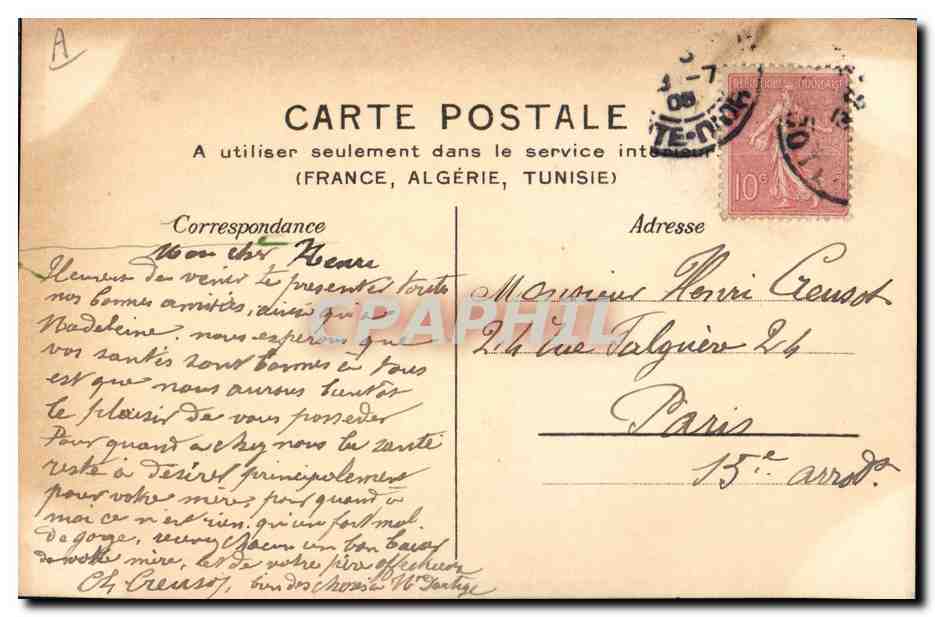 A
CARTE POSTALE
A utiliser seulement dans le service intérieur
(FRANCE, ALGÉRIE, TUNISIE)
RÉPUBLIQUE FRANÇAISE
10c
-7
08
TE-D'OR
Correspondance
Mon cher Henri
Heureux de venir te presenter toutes
nos bonnes amitiés, ainsi qu'a
Madeleine. nous esperons que
vos santés sont bonnes et tous
est que nous aurons bientot
le plaisir de vous posseder
Pour quand a chez nous la santé
reste a désirer principalement
pour votre mère, pour quand à
moi ce n'est rien qu'un fort mal
de gorge, recevez chacun un bon baiser
de votre mère, et de votre père
Ch Creusot, bien des choses a
Adresse
Monsieur Henri Creusot
24 rue Falguère 24
Paris
15e arrodt
CPAPHIL